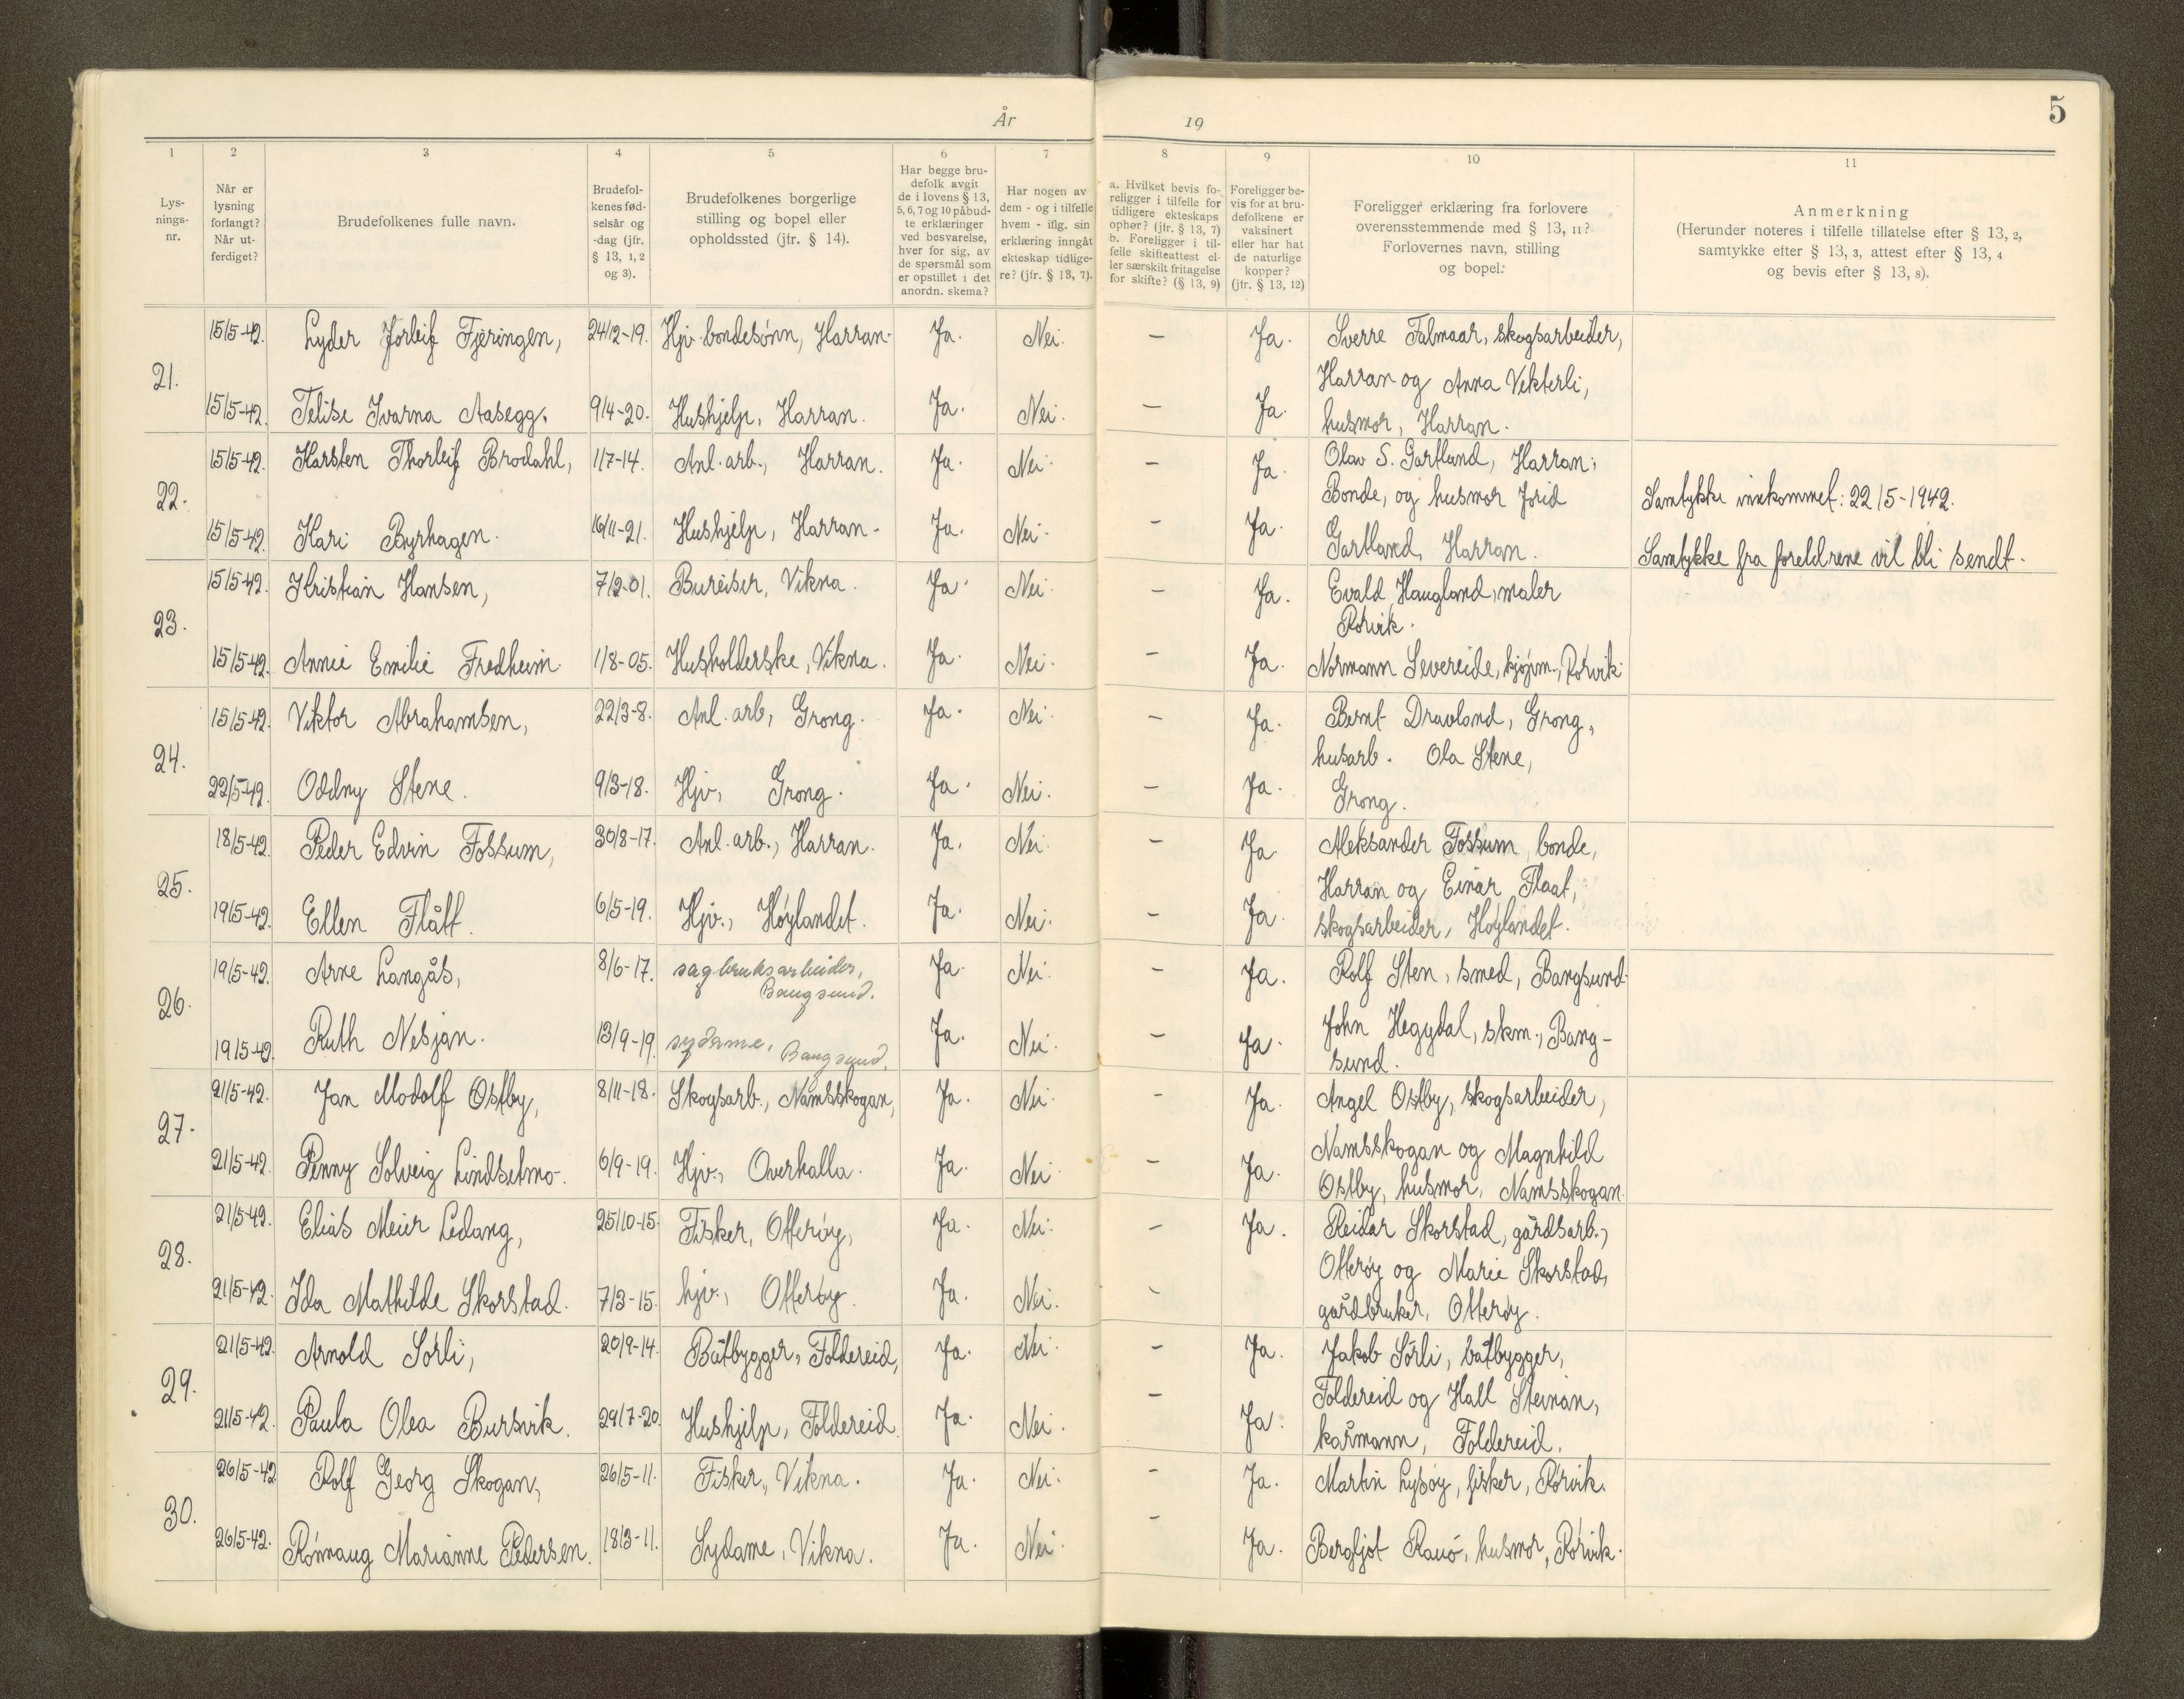 År 19
5
1 2 3 4 5 6 7 8 9 10 11
Lys-
nings-
nr.
Når er
lysning
forlangt?
Når ut-
ferdiget?
Brudefolkenes fulle navn.
Brudefol-
kenes fød-
selsår og
-dag (jfr.
§ 13, 1, 2
og 3).
Brudefolkenes borgerlige
stilling og bopel eller
opholdssted (jfr. § 14).
Har begge bru-
defolk avgit
de i lovens § 13,
5, 6, 7 og 10 påbud-
te erklæringer
ved besvarelse,
hver for sig, av
de spørsmål som
er opstillet i det
anordn. skema?
Har nogen av
dem - og i tilfelle
hvem - iflg. sin
erklæring inngåt
ekteskap tidlige-
re? (jfr. § 13, 7).
a. Hvilket bevis fo-
religger i tilfelle for
tidligere ekteskaps
ophør? (jfr. § 13, 7)
b. Foreligger i til-
felle skifteattest el-
ler særskilt fritagelse
for skifte? (§ 13, 9)
Foreligger be-
vis for at bru-
defolkene er
vaksinert
eller har hat
de naturlige
kopper?
(jfr. § 13, 12)
Foreligger erklæring fra forlovere
overensstemmende med § 13, 11?
Forlovernes navn, stilling
og bopel.
Anmerkning
(Herunder noteres i tilfelle tillatelse efter § 13, 2,
samtykke efter § 13, 3, attest efter § 13, 4
og bevis efter § 13, 8).
21.
15/5-42. Lyder Jorleif Fjeringen, 24/12-19. Hjv. bondesønn, Harran. Ja. Nei. - Ja. Sverre Falmaar, skogsarbeider,
Harran og Anna Vekterli,
15/5-42. Telise Ivarna Aasegg. 9/4-20. Hushjelp, Harran. Ja. Nei. - Ja. husmor, Harran.
22.
15/5-42. Karsten Thorleif Brodahl, 1/7-14. Anl. arb., Harran. Ja. Nei. - Ja. Olav S. Gartland, Harran,
Bonde, og husmor Jorid Samtykke innkommet: 22/5-1942.
15/5-42. Kari Byrhagen. 16/11-21. Hushjelp, Harran. Ja. Nei. - Ja. Gartland, Harran. Samtykke fra foreldrene vil bli sendt.
23.
15/5-42. Kristian Hansen, 7/2-01. Bureiser, Vikna. Ja. Nei. - Ja. Evald Haugland, maler
Rørvik.
15/5-42. Annie Emilie Fredheim. 1/8-05. Husholderske, Vikna. Ja. Nei. - Ja. Normann Severeide, kjøpm., Rørvik.
24.
15/5-42. Viktor Abrahamsen, 22/3-8. Anl. arb, Grong. Ja. Nei. - Ja. Bernt Dravland, Grong,
husarb. Ola Stene,
22/5-42. Oddny Stene. 9/3-18. Hjv, Grong. Ja. Nei. - Ja. Grong.
25.
18/5-42. Peder Edvin Fossum, 30/8-17. Anl. arb., Harran. Ja. Nei. - Ja Aleksander Fossum, bonde,
Harran og Einar Flaat,
19/5-42. Ellen Flått. 6/5-19. Hjv., Høylandet. Ja. Nei. - Ja. skogsarbeider, Høylandet.
26.
19/5-42. Arne Langås, 8/6-17. sagbruksarbeider, Ja. Nei. - Ja. Rolf Sten, smed, Bangsund.
Bangsund.
John Hegydal, skm., Bang-
19/5-42. Ruth Nesjan. 13/9-19. sydame, Bangsund. Ja. Nei. - Ja. sund.
27.
21/5-42. Jan Modolf Østby, 8/11-18. Skogsarb., Namsskogan, Ja. Nei. - Ja. Angel Østby, skogsarbeider,
Namsskogan og Magnhild
21/5-42. Penny Solveig Lindsetmo. 6/9-19. Hjv., Overhalla. Ja. Nei. - Ja. Østby, husmor, Namsskogan.
28.
21/5-42. Elias Meier Ledang, 25/10-15. Fisker, Otterøy, Ja. Nei. - Ja. Reidar Skorstad, gårdsarb.,
Otterøy og Marie Skorstad,
21/5-42. Ida Mathilde Skorstad. 7/3-15. hjv., Otterøy. Ja. Nei. - gårdbruker, Otterøy.
29.
21/5-42. Arnold Sørli, 20/9-14. Båtbygger, Foldereid, Ja. Nei. - Ja. Jakob Sørli, båtbygger,
Foldereid og Hall Steinan,
21/5-42. Paula Olea Bursvik. 29/7-20. Hushjelp, Foldereid. Ja. Nei. - Ja. kårmann, Foldereid.
30.
26/5-42 Rolf Georg Skogan, 26/5-11. Fisker, Vikna. Ja. Nei. - Ja. Martin Lysøy, fisker, Rørvik.
26/5-42. Rønnaug Marianne Pedersen. 18/3-11. Sydame, Vikna. Ja. Nei. - Ja. Bergljot Ranø, husmor, Rørvik.